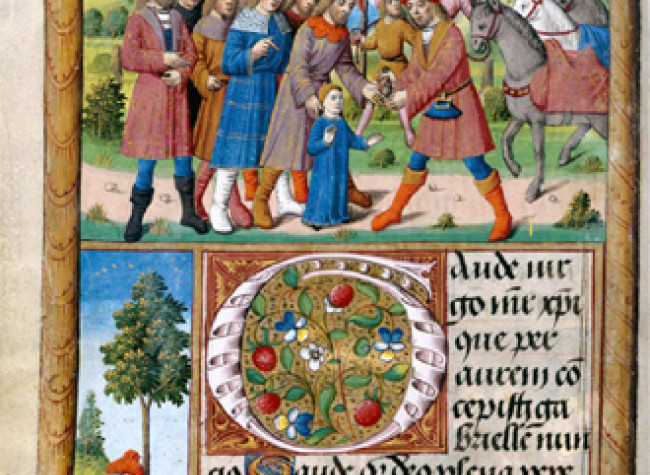 Gaude vir
go m̄r xp̄i
que per
aurem cō
cepisti ga
briellē nun
Gaude deo plena